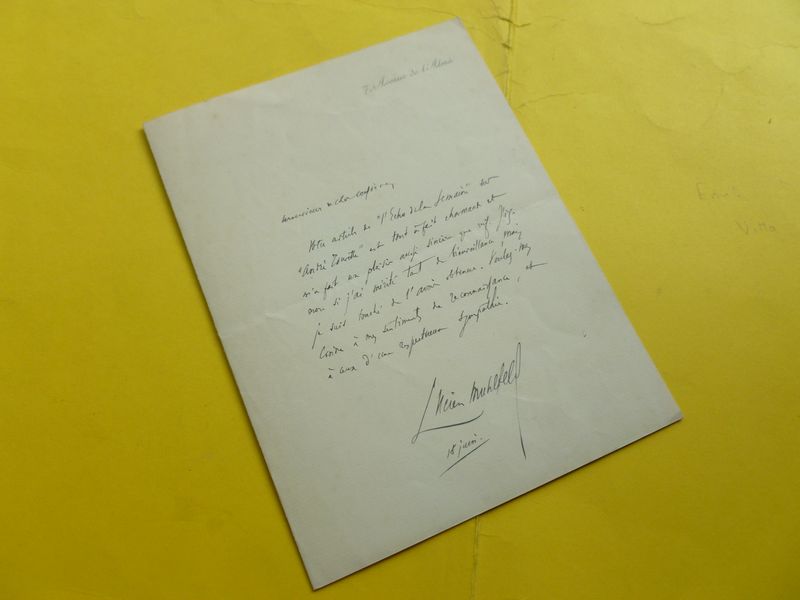 Monsieur et cher confrère,
Votre article de "l'Echo de la Semaine" sur
"André Tourette" est tout à fait charmant et
m'a fait un plaisir aussi sincère que vif. J'ig-
nore si j'ai mérité tant de bienveillance, mais
je suis touché de l'avoir obtenue. Voulez-vous
croire à mes sentiments de reconnaissance, et
à ceux d'une respectueuse sympathie.
Lucien Muhlfeld
18 juin.